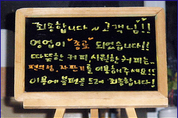 죄송합니다~ 고객님!!
영업이 종료 되었습니다!!
따뜻한 커피, 시원한 커피는..
편의점, 자판기를 이용해주세요!!
이용에 불편을 드려 죄송합니다!